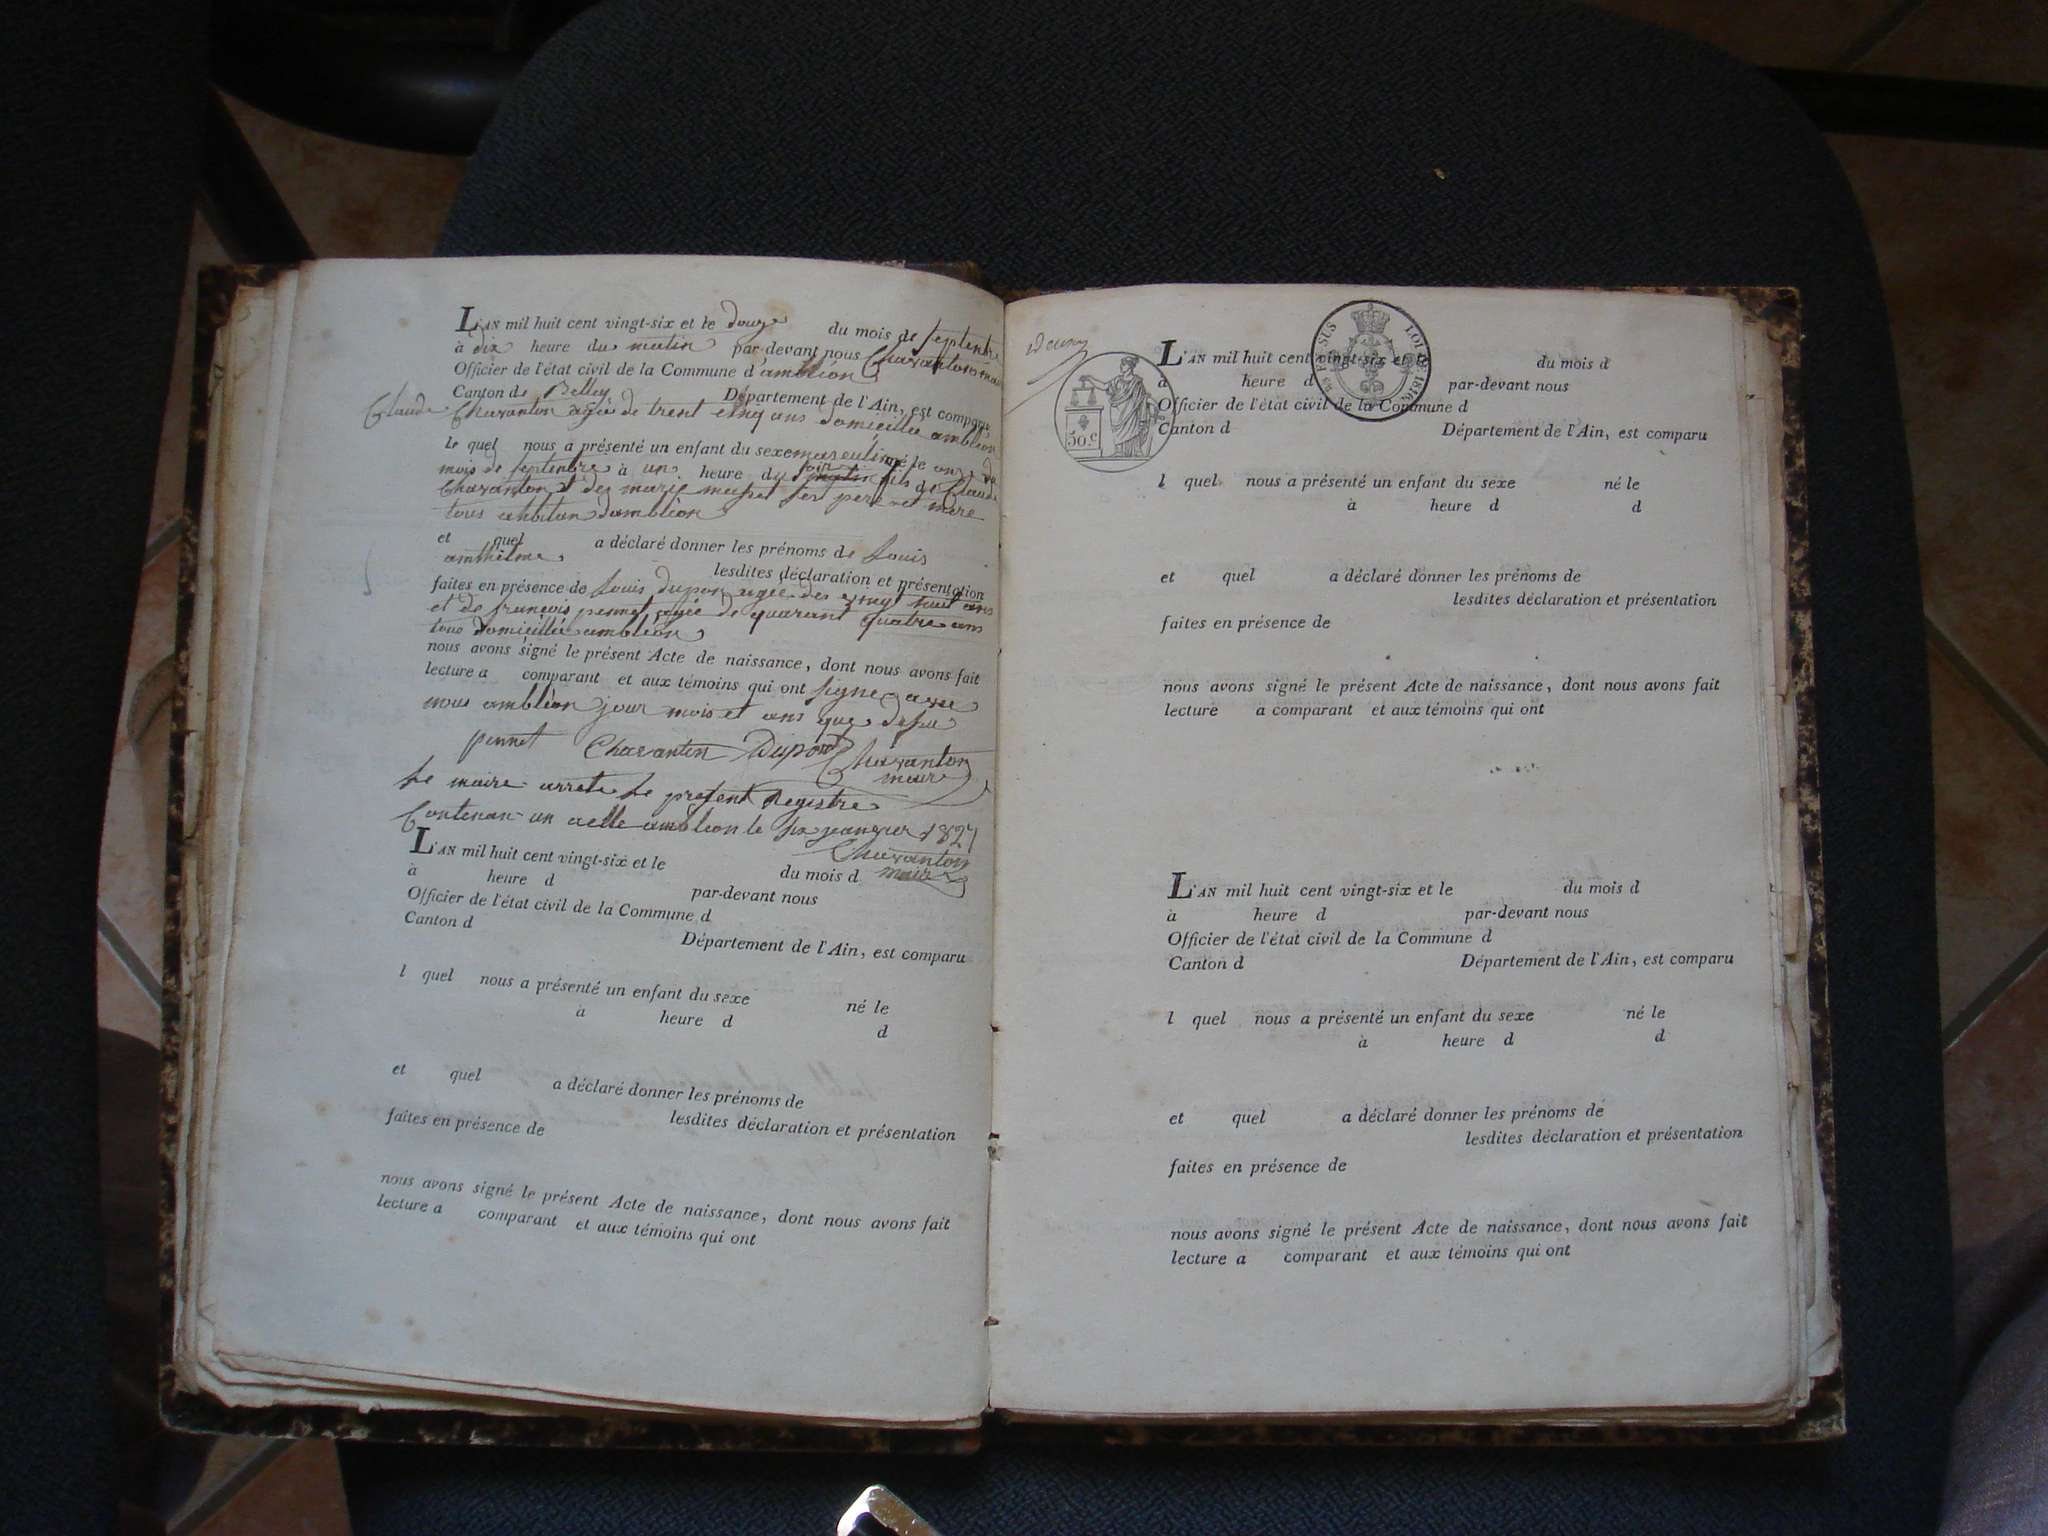 L'AN mil huit cent vingt-six et le douze du mois de septembre
à dix heure du matin par-devant nous Charanton maire
Officier de l'état civil de la Commune d'ambléon
Canton de Belley Département de l'Ain, est comparu
Claude Charanton agée de trent cinq ans domeicilié ambléon
le quel nous a présenté un enfant du sexe masculin né le onze du
mois de septembre à un heure du soir fils de Claude
Charanton et de marie ses pere et mere
tous ambléon
et quel a déclaré donner les prénoms de Louis
amthelme lesdites déclaration et présentation
faites en présence de Louis dupon agée de vingt huit ans
et de françois pennet agée de quarant quatre ans
tous domicillié ambléon
nous avons signé le présent Acte de naissance, dont nous avons fait
lecture a comparant et aux témoins qui ont signe avec
nous ambléon jour mois et ans que desu
pennet Charanton Dupont Charanton
maire
Le maire arrete le present Registre
Contenan un acte ambléon le six janvier 1827
Charanton
maire
L'AN mil huit cent vingt-six et le du mois d
à heure d par-devant nous
Officier de l'état civil de la Commune d
Canton d Département de l'Ain, est comparu
l quel nous a présenté un enfant du sexe né le
à heure d d
et quel a déclaré donner les prénoms de
lesdites déclaration et présentation
faites en présence de
nous avons signé le présent Acte de naissance, dont nous avons fait
lecture a comparant et aux témoins qui ont
50.c
LOI DE 1816
L'AN mil huit cent vingt-six et le du mois d
à heure d par-devant nous
Officier de l'état civil de la Commune d
Canton d Département de l'Ain, est comparu
l quel nous a présenté un enfant du sexe né le
à heure d d
et quel a déclaré donner les prénoms de
lesdites déclaration et présentation
faites en présence de
nous avons signé le présent Acte de naissance, dont nous avons fait
lecture a comparant et aux témoins qui ont
L'AN mil huit cent vingt-six et le du mois d
à heure d par-devant nous
Officier de l'état civil de la Commune d
Canton d Département de l'Ain, est comparu
l quel nous a présenté un enfant du sexe né le
à heure d d
et quel a déclaré donner les prénoms de
lesdites déclaration et présentation
faites en présence de
nous avons signé le présent Acte de naissance, dont nous avons fait
lecture a comparant et aux témoins qui ont